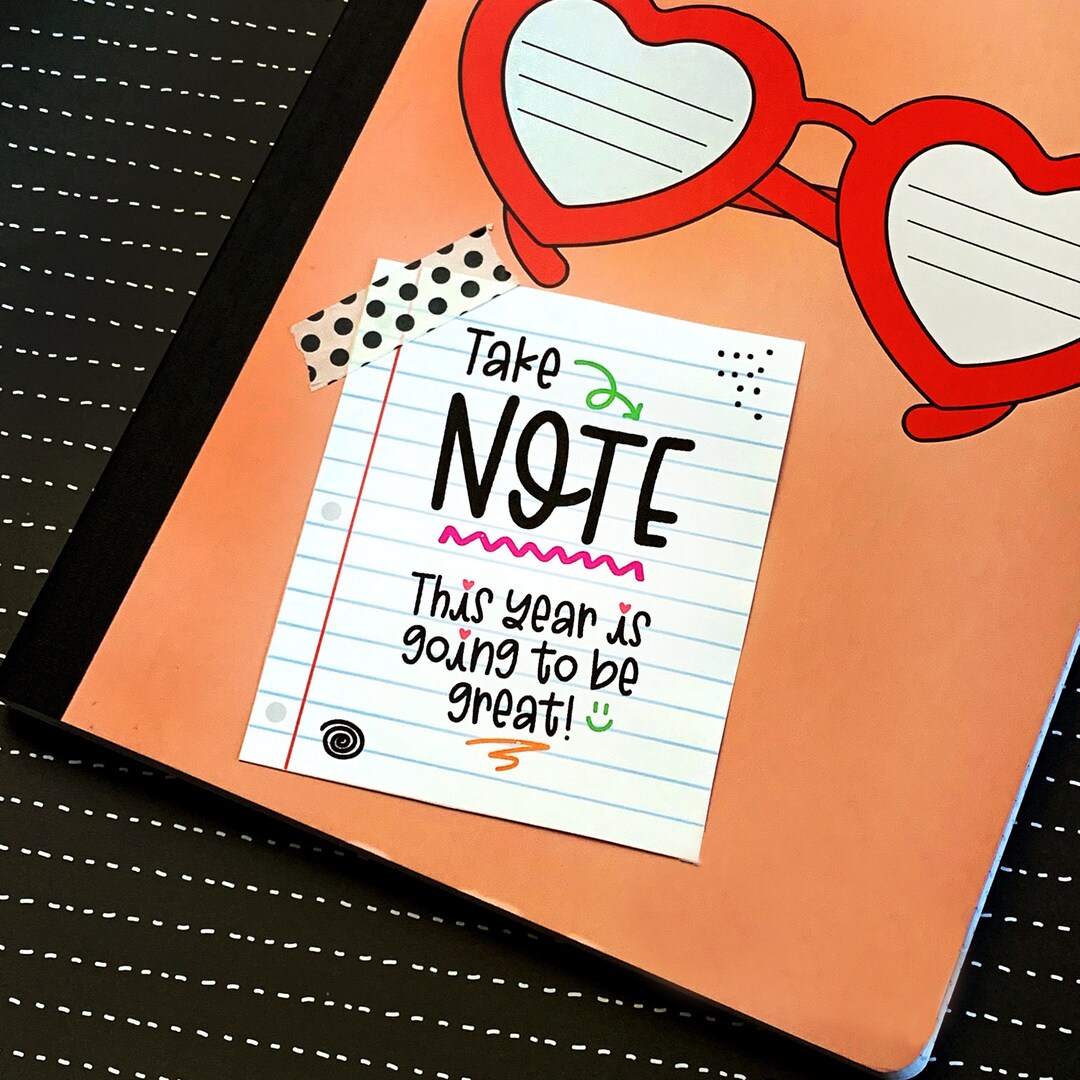 Take
NOTE
This year is
going to be
great!